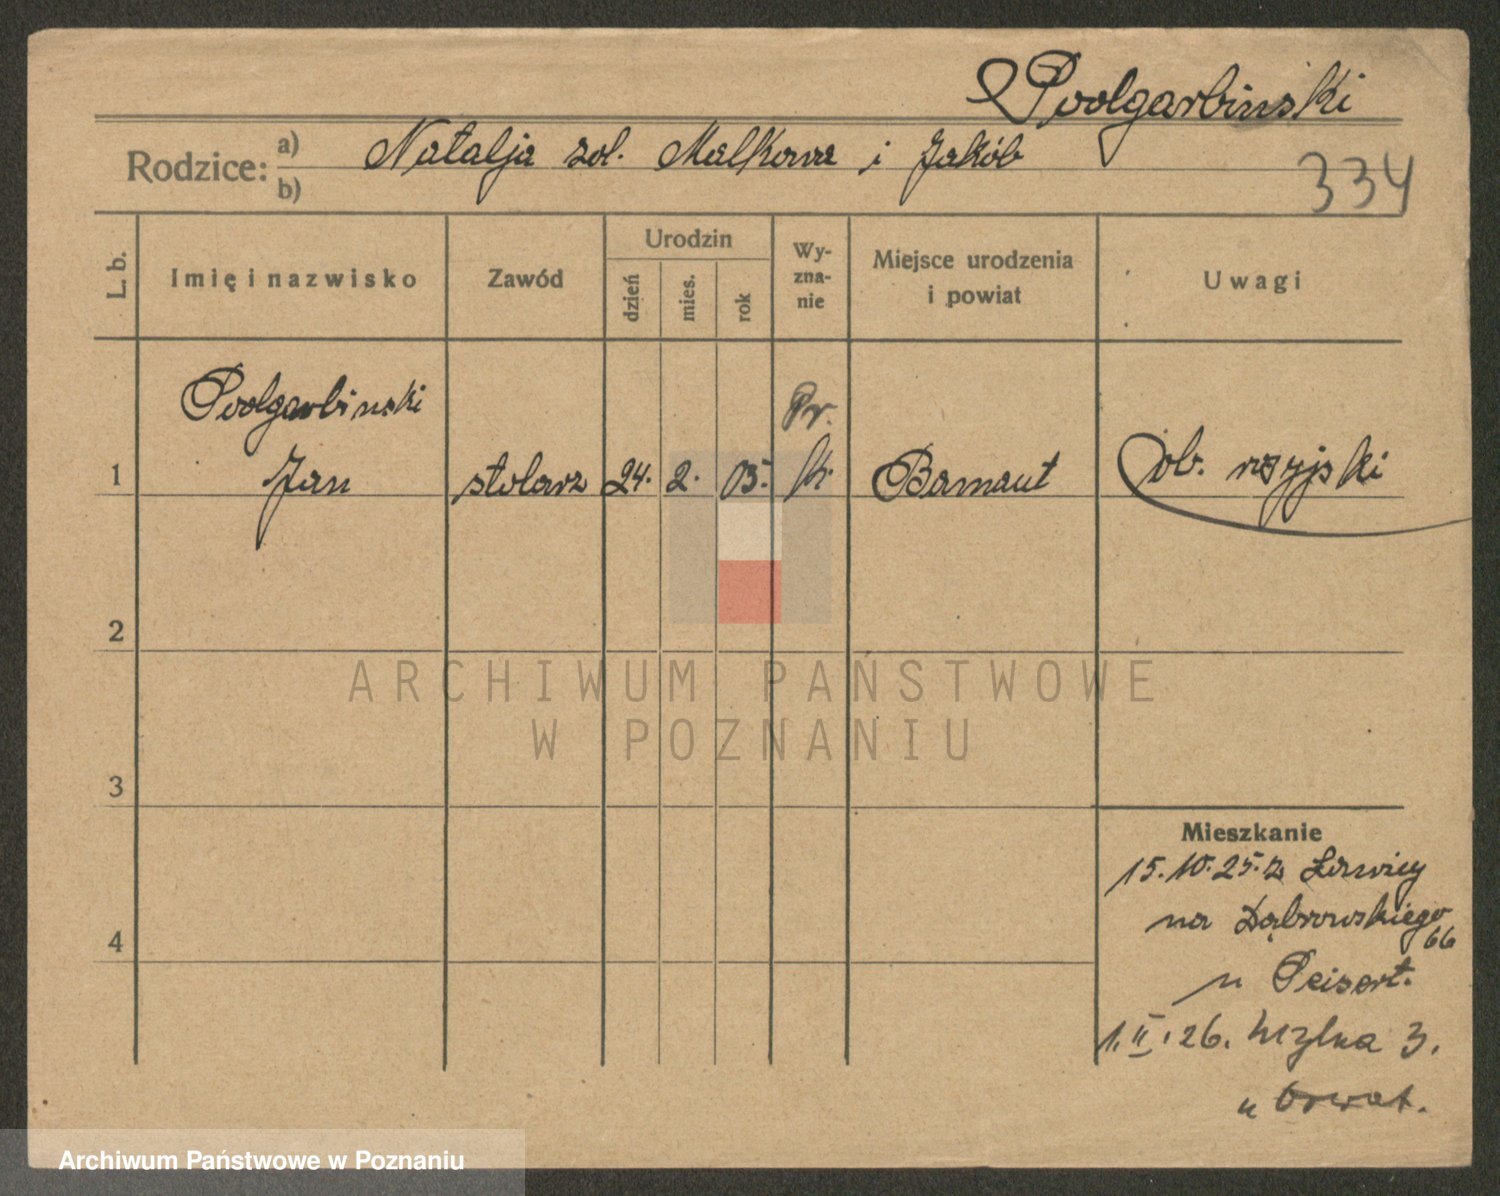 Podgarbinski
Rodzice: a) Natalja zd. Malkowa i Jakób
b)
334
L. b.
Imię i nazwisko
Zawód
Urodzin
dzień
mies.
rok
Wy-
zna-
nie
Miejsce urodzenia
i powiat
Uwagi
Podgarbinski
Pr.
1 Jan stolarz 24. 2. 05. k. Barnaut ob. rosyjski
2
3
4
Mieszkanie
15.10.25. z Ławicy
na Dąbrowskiego
66
u Peisert.
1.II.26. 3.
u
ARCHIWUM PAŃSTWOWE
W POZNANIU
Archiwum Państwowe w Poznaniu